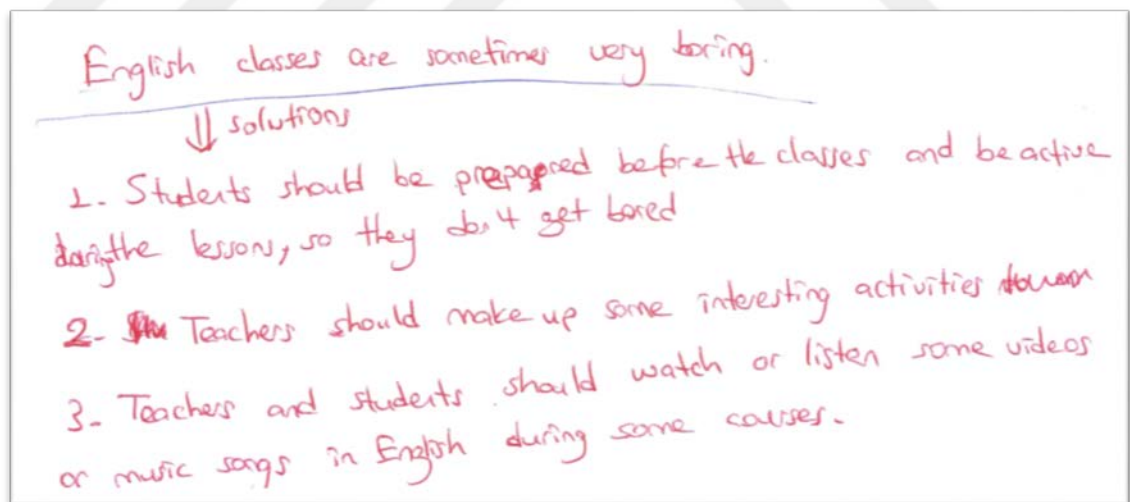 English classes are sometimes very boring.
⇓ solutions
1. Students should be prepared before the classes and be active
during the lesson, so they don't get bored
2- Teachers should make up some interesting activities
3- Teachers and students should watch or listen some videos
or music songs in English during some courses.